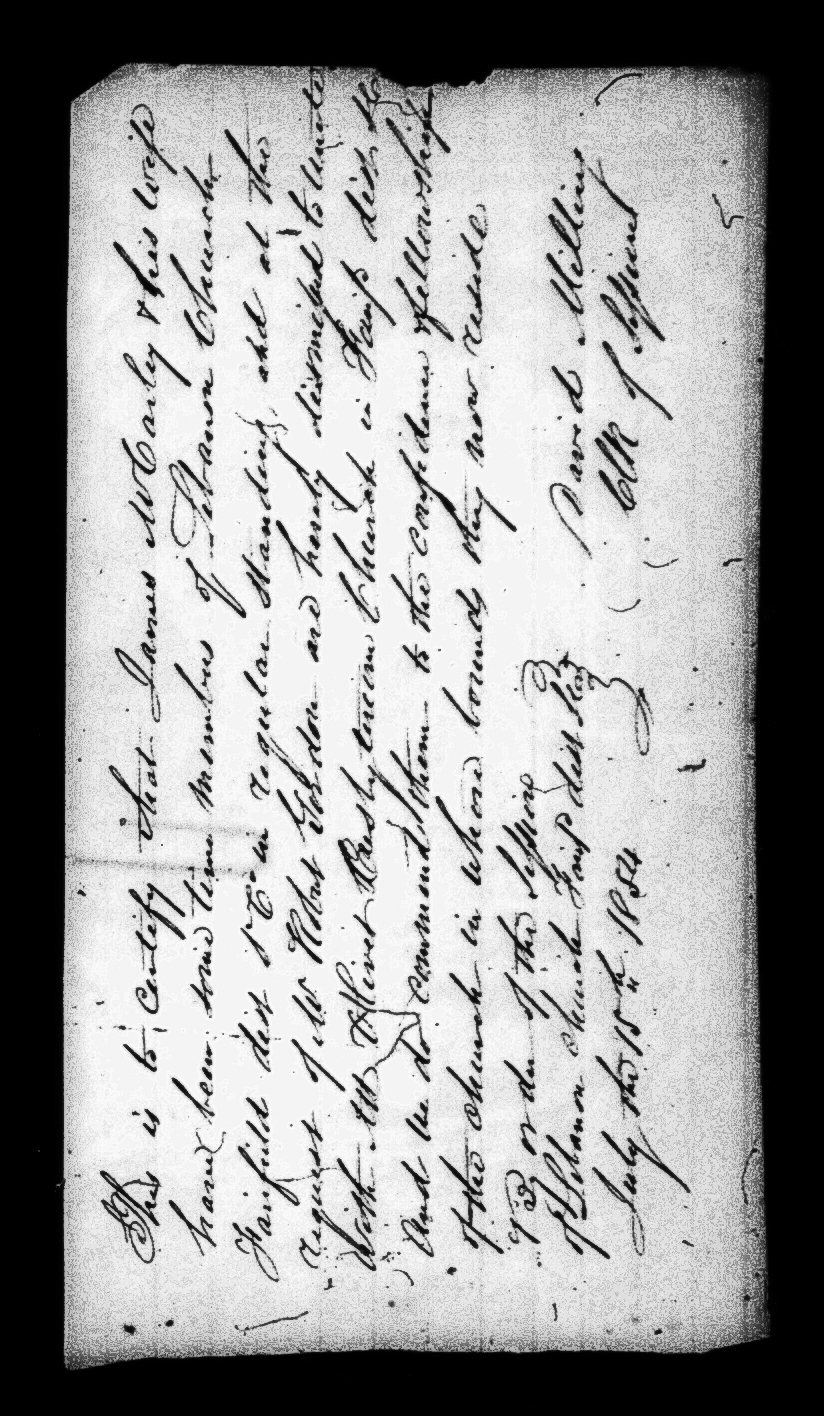 This is to certify that James McCarley & his wife
have been some time members of Lebanon Church
Fairfield dist S. C. in regular standing and at the
request of Mr Robert Gordon are hereby dismissed to unite
With Mt Olivet Presbyterian Church in Fairf dist
And we do commend them to the confidence & fellowship
of the church in whose bounds they now reside
By order of the Session
of Lebanon church Fairf dist
July the 15th 1854
David Milling
Clk of Session